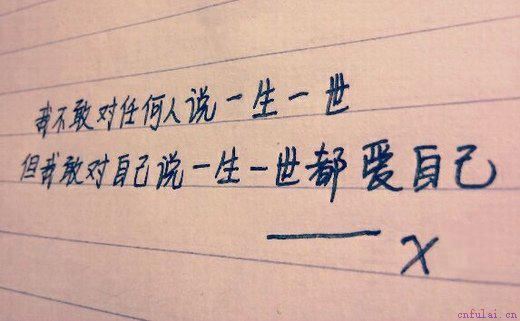 我不敢对任何人说一生一世
但我敢对自己说一生一世都爱自己
——x
cnfulai.cn